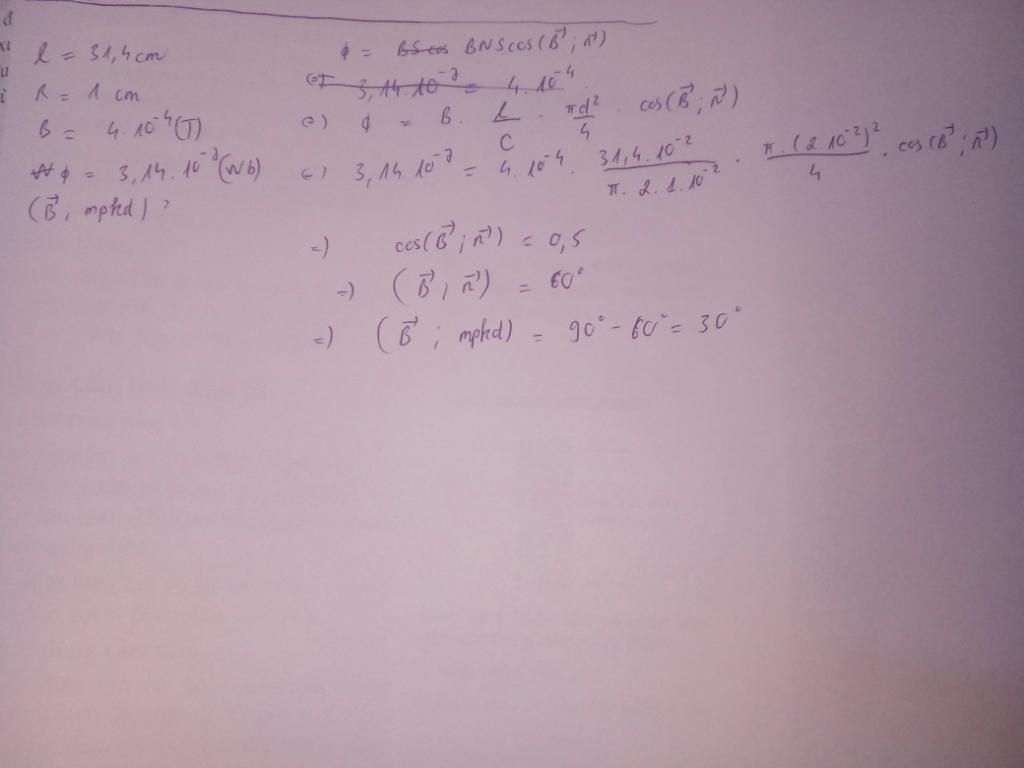 l = 31,4 cm
R = 1 cm
B = 4.10⁻⁴ (T)
ϕ = 3,14.10⁻⁷ (Wb)
(B⃗ ; mpkd) ?
ϕ = BS cos BNS cos(B⃗ ; n⃗)
3,14.10⁻⁷ = 4.10⁻⁴
(=) ϕ = B . l/C . πd²/4 . cos(B⃗ ; n⃗)
(=) 3,14.10⁻⁷ = 4.10⁻⁴ . 31,4.10⁻²/π.2.1.10⁻² . π.(2.10⁻²)²/4 . cos(B⃗ ; n⃗)
=) cos(B⃗ ; n⃗) = 0,5
=) (B⃗ ; n⃗) = 60°
=) (B⃗ ; mpkd) = 90° - 60° = 30°